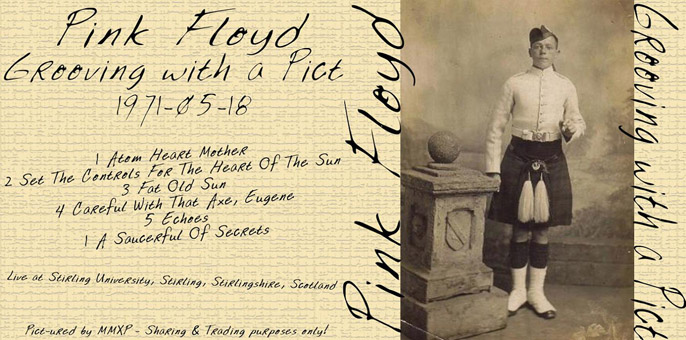 Pink Floyd
Grooving with a Pict
1971-05-18
1 Atom Heart Mother
2 Set The Controls For The Heart Of The Sun
3 Fat Old Sun
4 Careful With That Axe, Eugene
5 Echoes
1 A Saucerful Of Secrets
Live at Stirling University, Stirling, Stirlingshire, Scotland
Pict-ured by MMXP - Sharing & Trading purposes only!
Pink Floyd
Grooving with a Pict